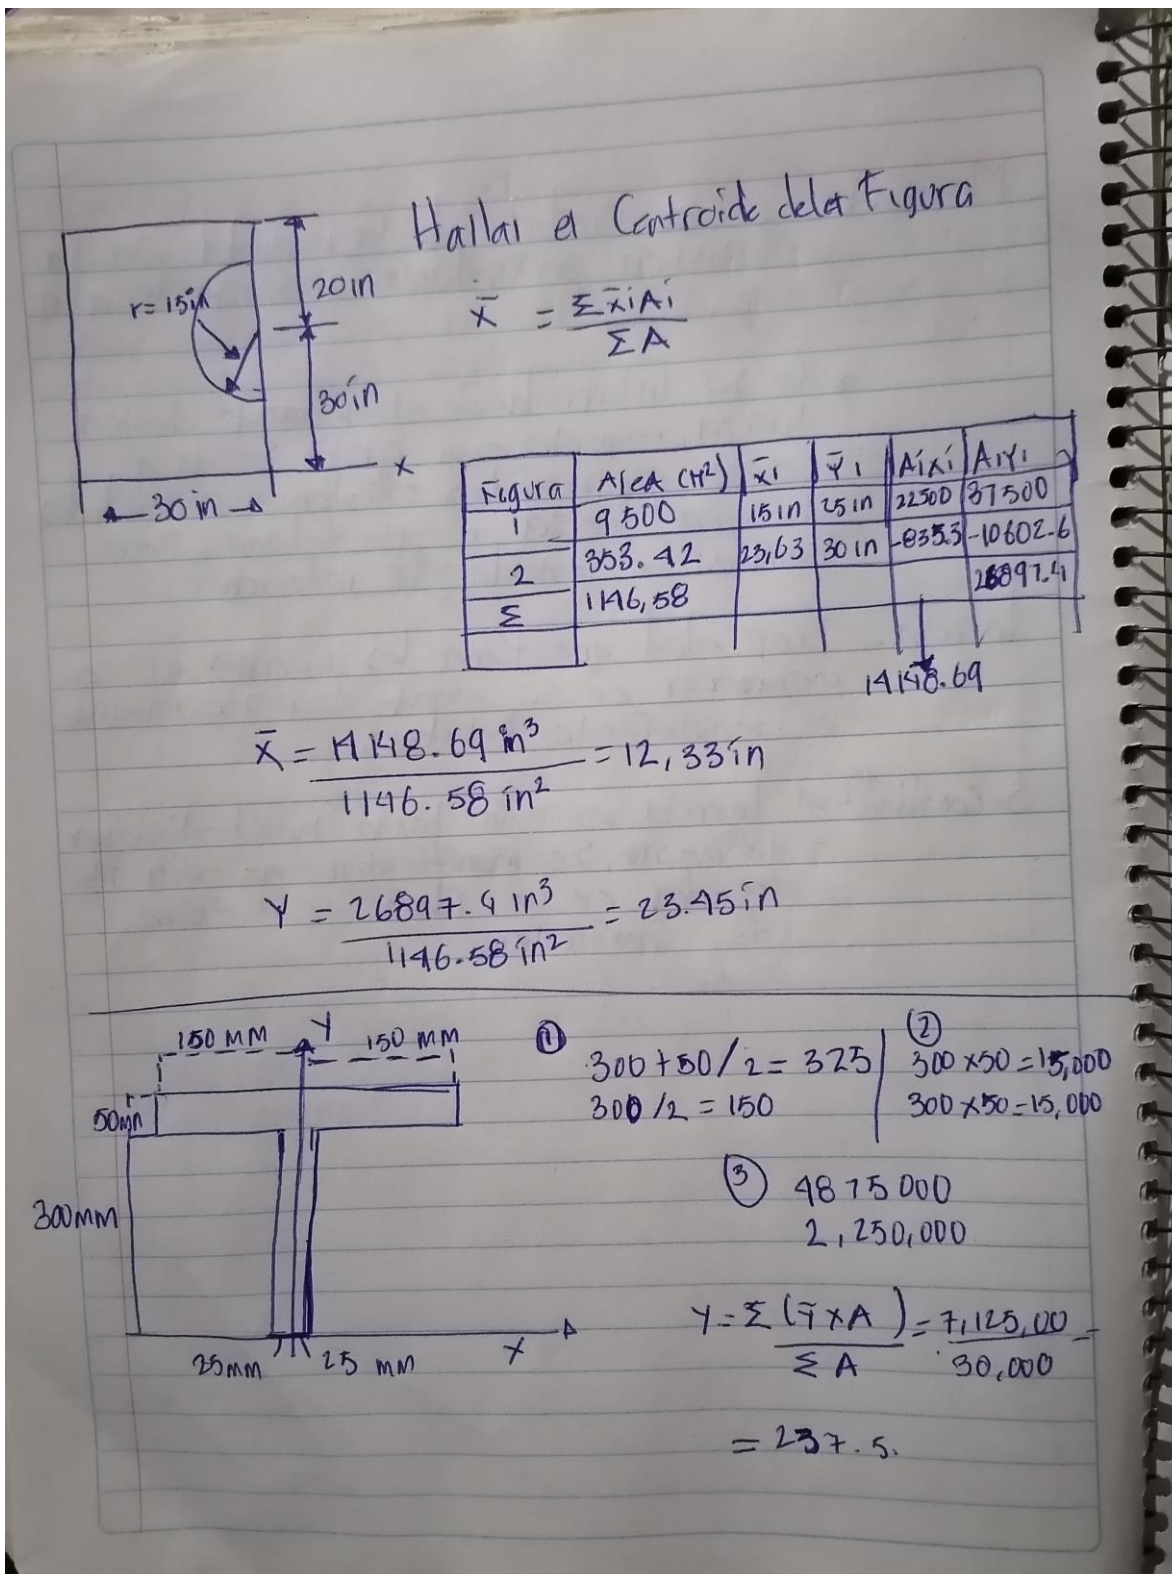 Hallar el Centroide dela Figura
r=15in
20in
30in
X
30in
X̄ = Σx̄iAi
ΣA
Figura | Area (H²) | x̄i | Ȳi | AiXi | AiYi
1 | 9500 | 15in | 25in | 22500 | 37500
2 | 353.42 | 23,63 | 30in | -8353 | -10602.6
Σ | 1146,58 | 26897.4
14148.69
X̄ = 14148.69 in³ = 12,33in
1146.58 in²
Y = 26897.4 in³ = 23.45in
1146.58 in²
150 MM Y 150 MM
50mm
300mm
25mm 25 mm X
①
300+50/2=325
300/2=150
②
300x50=15,000
300x50=15,000
③ 4875000
2,250,000
Y=Σ(Ȳ x A)=7,125,00 =
ΣA 30,000
= 237.5.